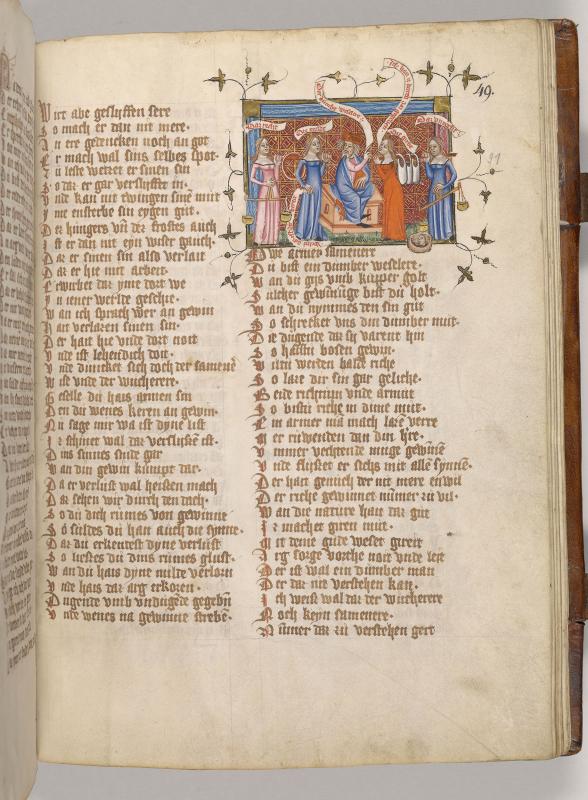 Wirt abe geslyffen sere
So mach er dan nit mere
An ere gedencken noch an got
Er mach wal sins selbes spot
Zu leste wetzet er sinen sin
So daz er gar verslysset in
Vnd kan nit twingen sine mut
Yme ensterbe sin eygen gut
Der hungers vnd der frostes auch
Ist er dan nit eyn wiser gauch
Daz er sinen sin also verlait
Daz er hie mit arbeit
Erwirbet daz yme dort we
In iener werlde geschie
Wan ich sprach wer an gewin
Hait verlazen sinen sin
Der hait hie vnde dort noit
Vnde ist lebendich doit
Vnde duncket sich doch der samene
Wise vnde der wucherere
Geselle du hais armen sin
Den du wenes keren an gewin
Nu sage mir wa ist dyne list
Iz schinet wal daz verlusse ist
Dins sinnes snide gar
Wan din gewin kumpt dar
Da er verlust wal heissen mach
Daz sehen wir durch den dach
So du dich rumes von gewinne
So suldes du han auch die synne
Daz du erkentest dyne verlust
So liesses du dins rumes glust
Wan du hais dyne milde verlorn
Vnde hais daz arg erkozen
Dugende vmb vndugede gegeben
Vnde wenes na gewinne strebe
49
91
Daz recht
Owe armer samenere
Du bist eyn dumber weselere
Wan du gijs vmb kupper golt
Sulcher gewinunge bist du holt
Wan du nymmes den sin gut
So schrecket vns din dumber mut
Die dugende daz sij varent hin
So hastu bosen gewin
Wiltu werden balde riche
So laze dir sin gar geliche
Beide richtum vnde armut
So bistu riche in dime mut
Ein armer man mach lazen verre
Me ruwenden dan din herre
Vmmer vechtende muge gewinnen
Vnde flysset er sichs mit allen synnen
Der hait genuch der nit mere enwil
Der riche gewinnet numer zu vil
Wan die nature hait daz gut
Iz machet giren mut
Mit deme gude weset gireit
Arg sorge vorchte noit vnde leit
Der ist wal ein dumber man
Der daz nit verstehen kan
Ich weis wal daz der wucherere
Noch keyn samenere
Nummer daz zu verstehen gert